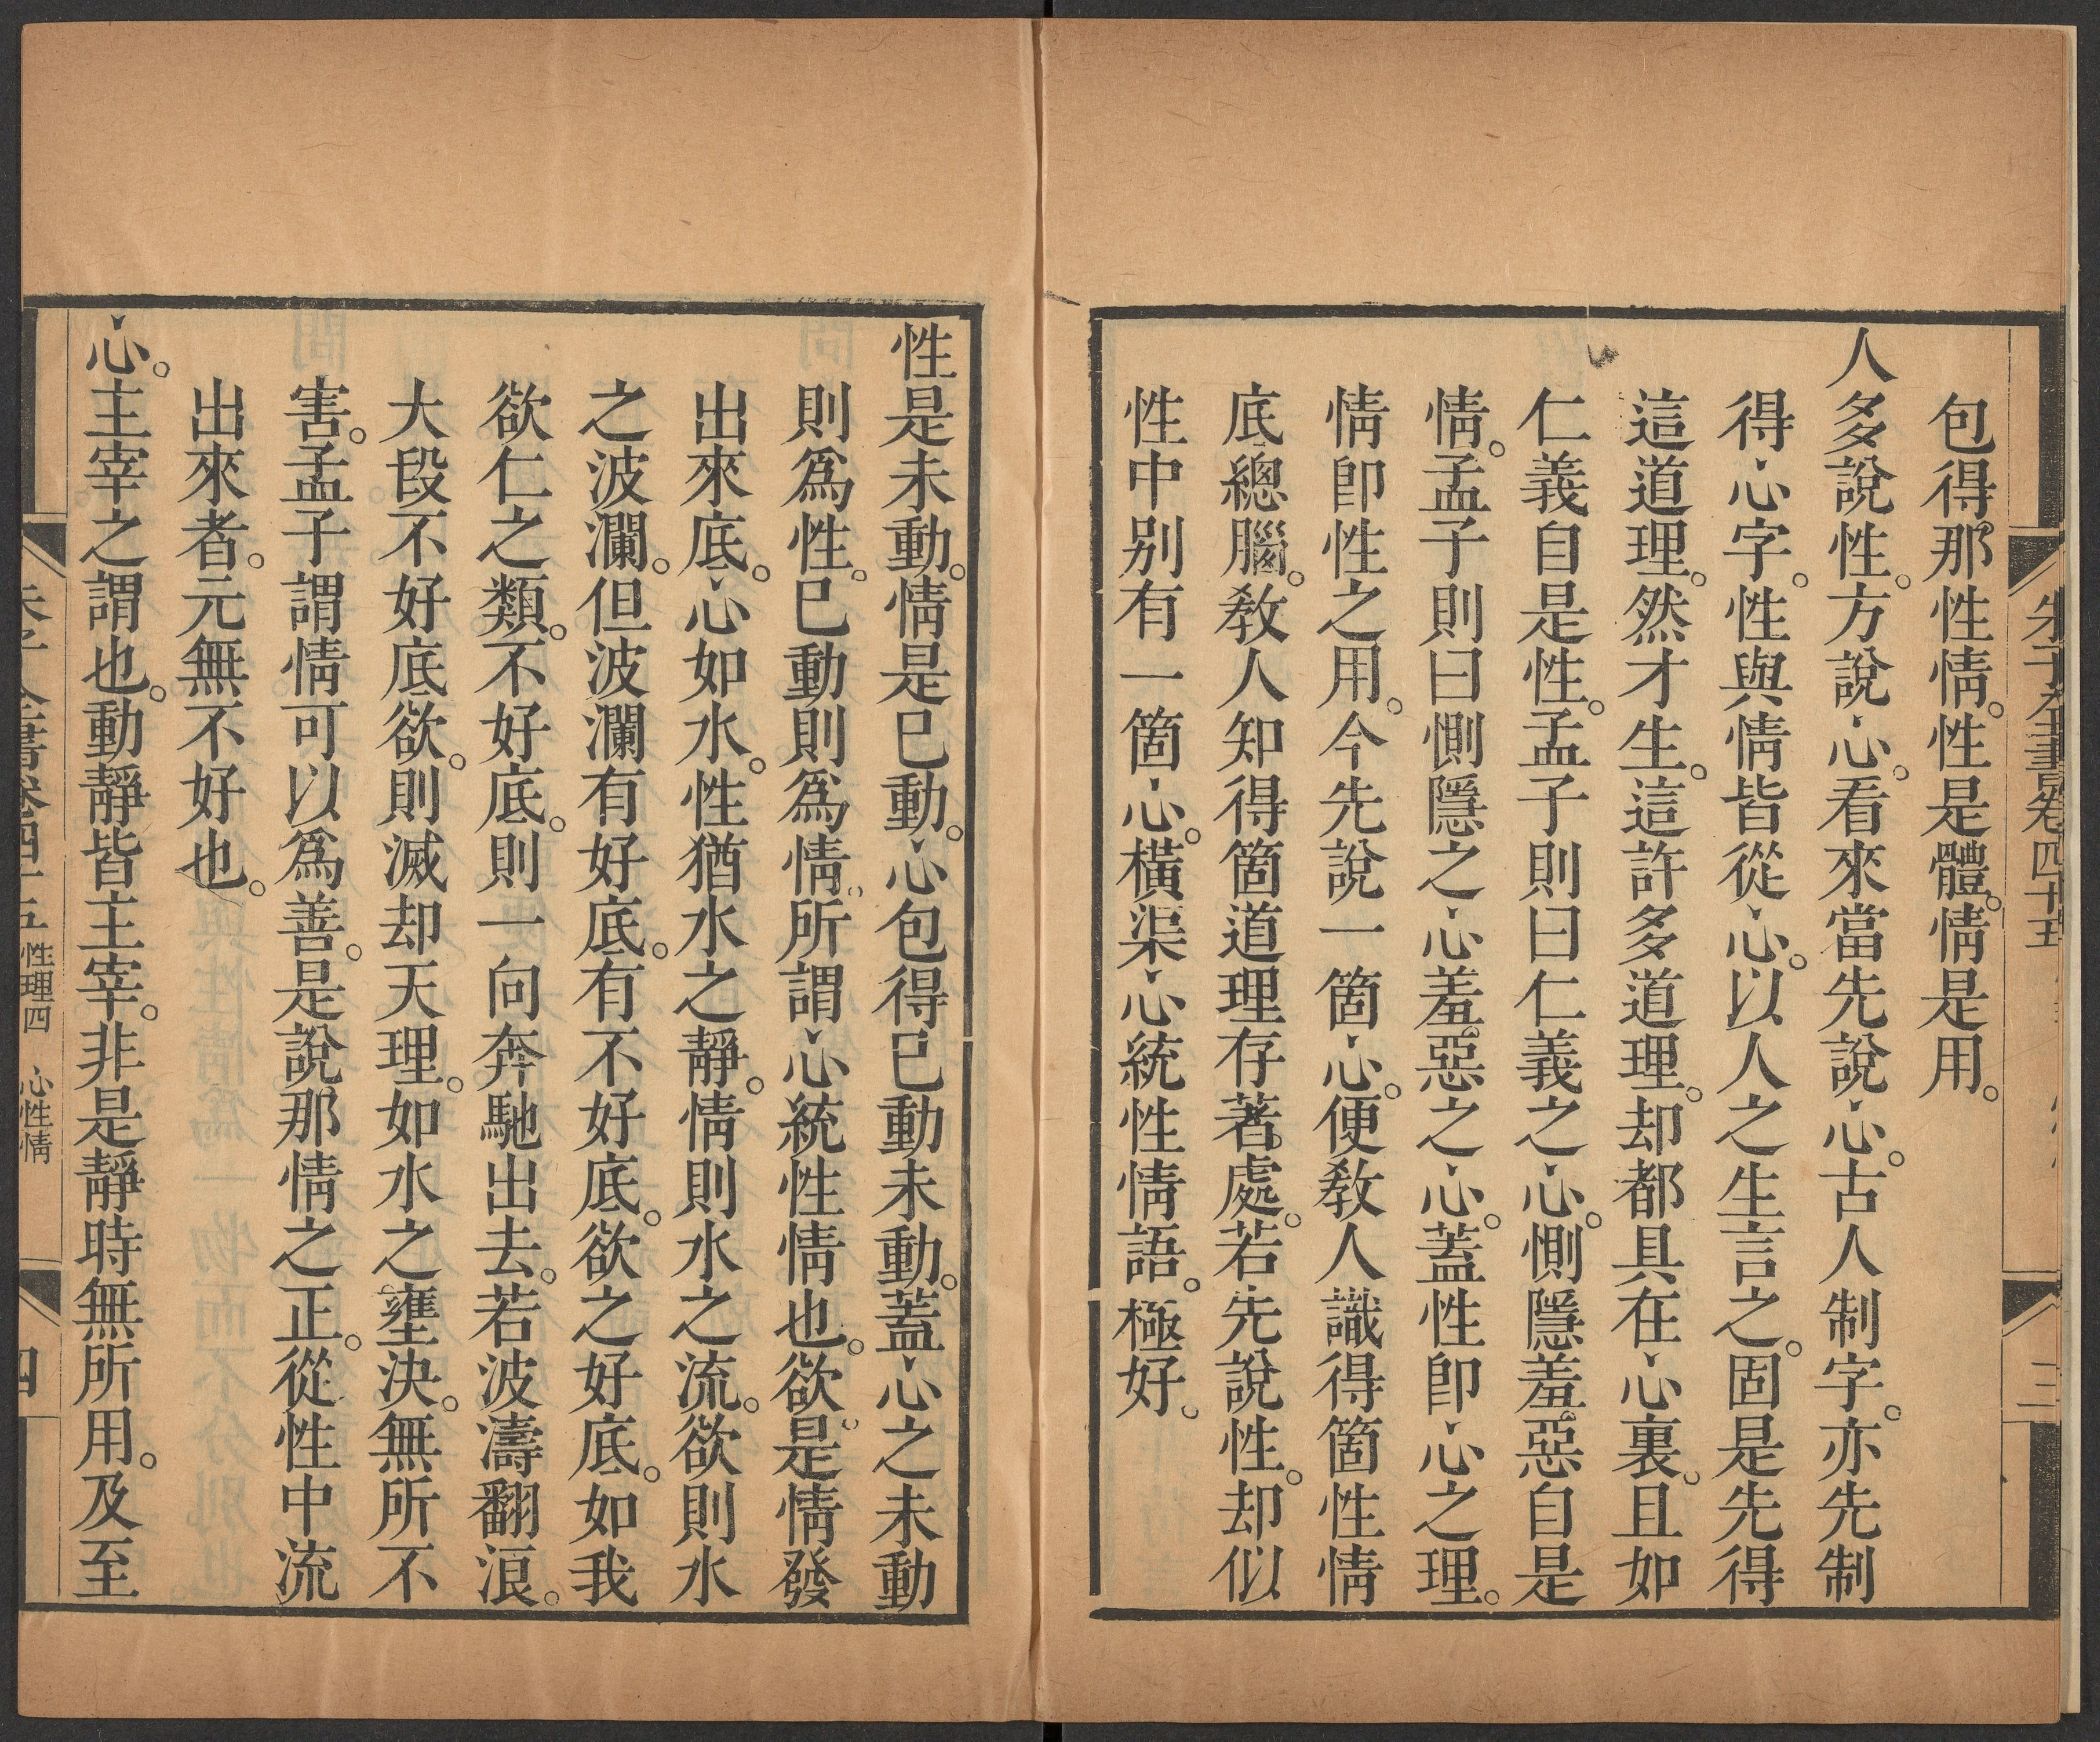 朱子全書卷四十五
三
包得那性情。性是體。情是用。
人多說性。方說心。看來當先說心。古人制字。亦先制
得心字。性與情皆從心。以人之生言之。固是先得
這道理。然才生。這許多道理。却都具在心裏。且如
仁義自是性。孟子則曰仁義之心。惻隱羞惡自是
情。孟子則曰惻隱之心羞惡之心。蓋性卽心之理。
情卽性之用。今先說一箇心。便敎人識得箇性情
底總腦。敎人知得箇道理存著處。若先說性。却似
性中别有一箇心。橫渠心統性情語。極好。
性是未動。情是已動。心包得已動未動。蓋心之未動
則爲性。已動則爲情。所謂心統性情也。欲是情發
出來底。心如水。性猶水之靜。情則水之流。欲則水
之波瀾。但波瀾有好底。有不好底。欲之好底。如我
欲仁之類。不好底。則一向奔馳出去。若波濤翻浪。
大段不好底欲。則滅却天理。如水之壅決。無所不
害。孟子謂情可以爲善。是說那情之正。從性中流
出來者。元無不好也。
心。主宰之謂也。動靜皆主宰。非是靜時無所用。及至
朱子全書卷四十五 性理四 心性情
四